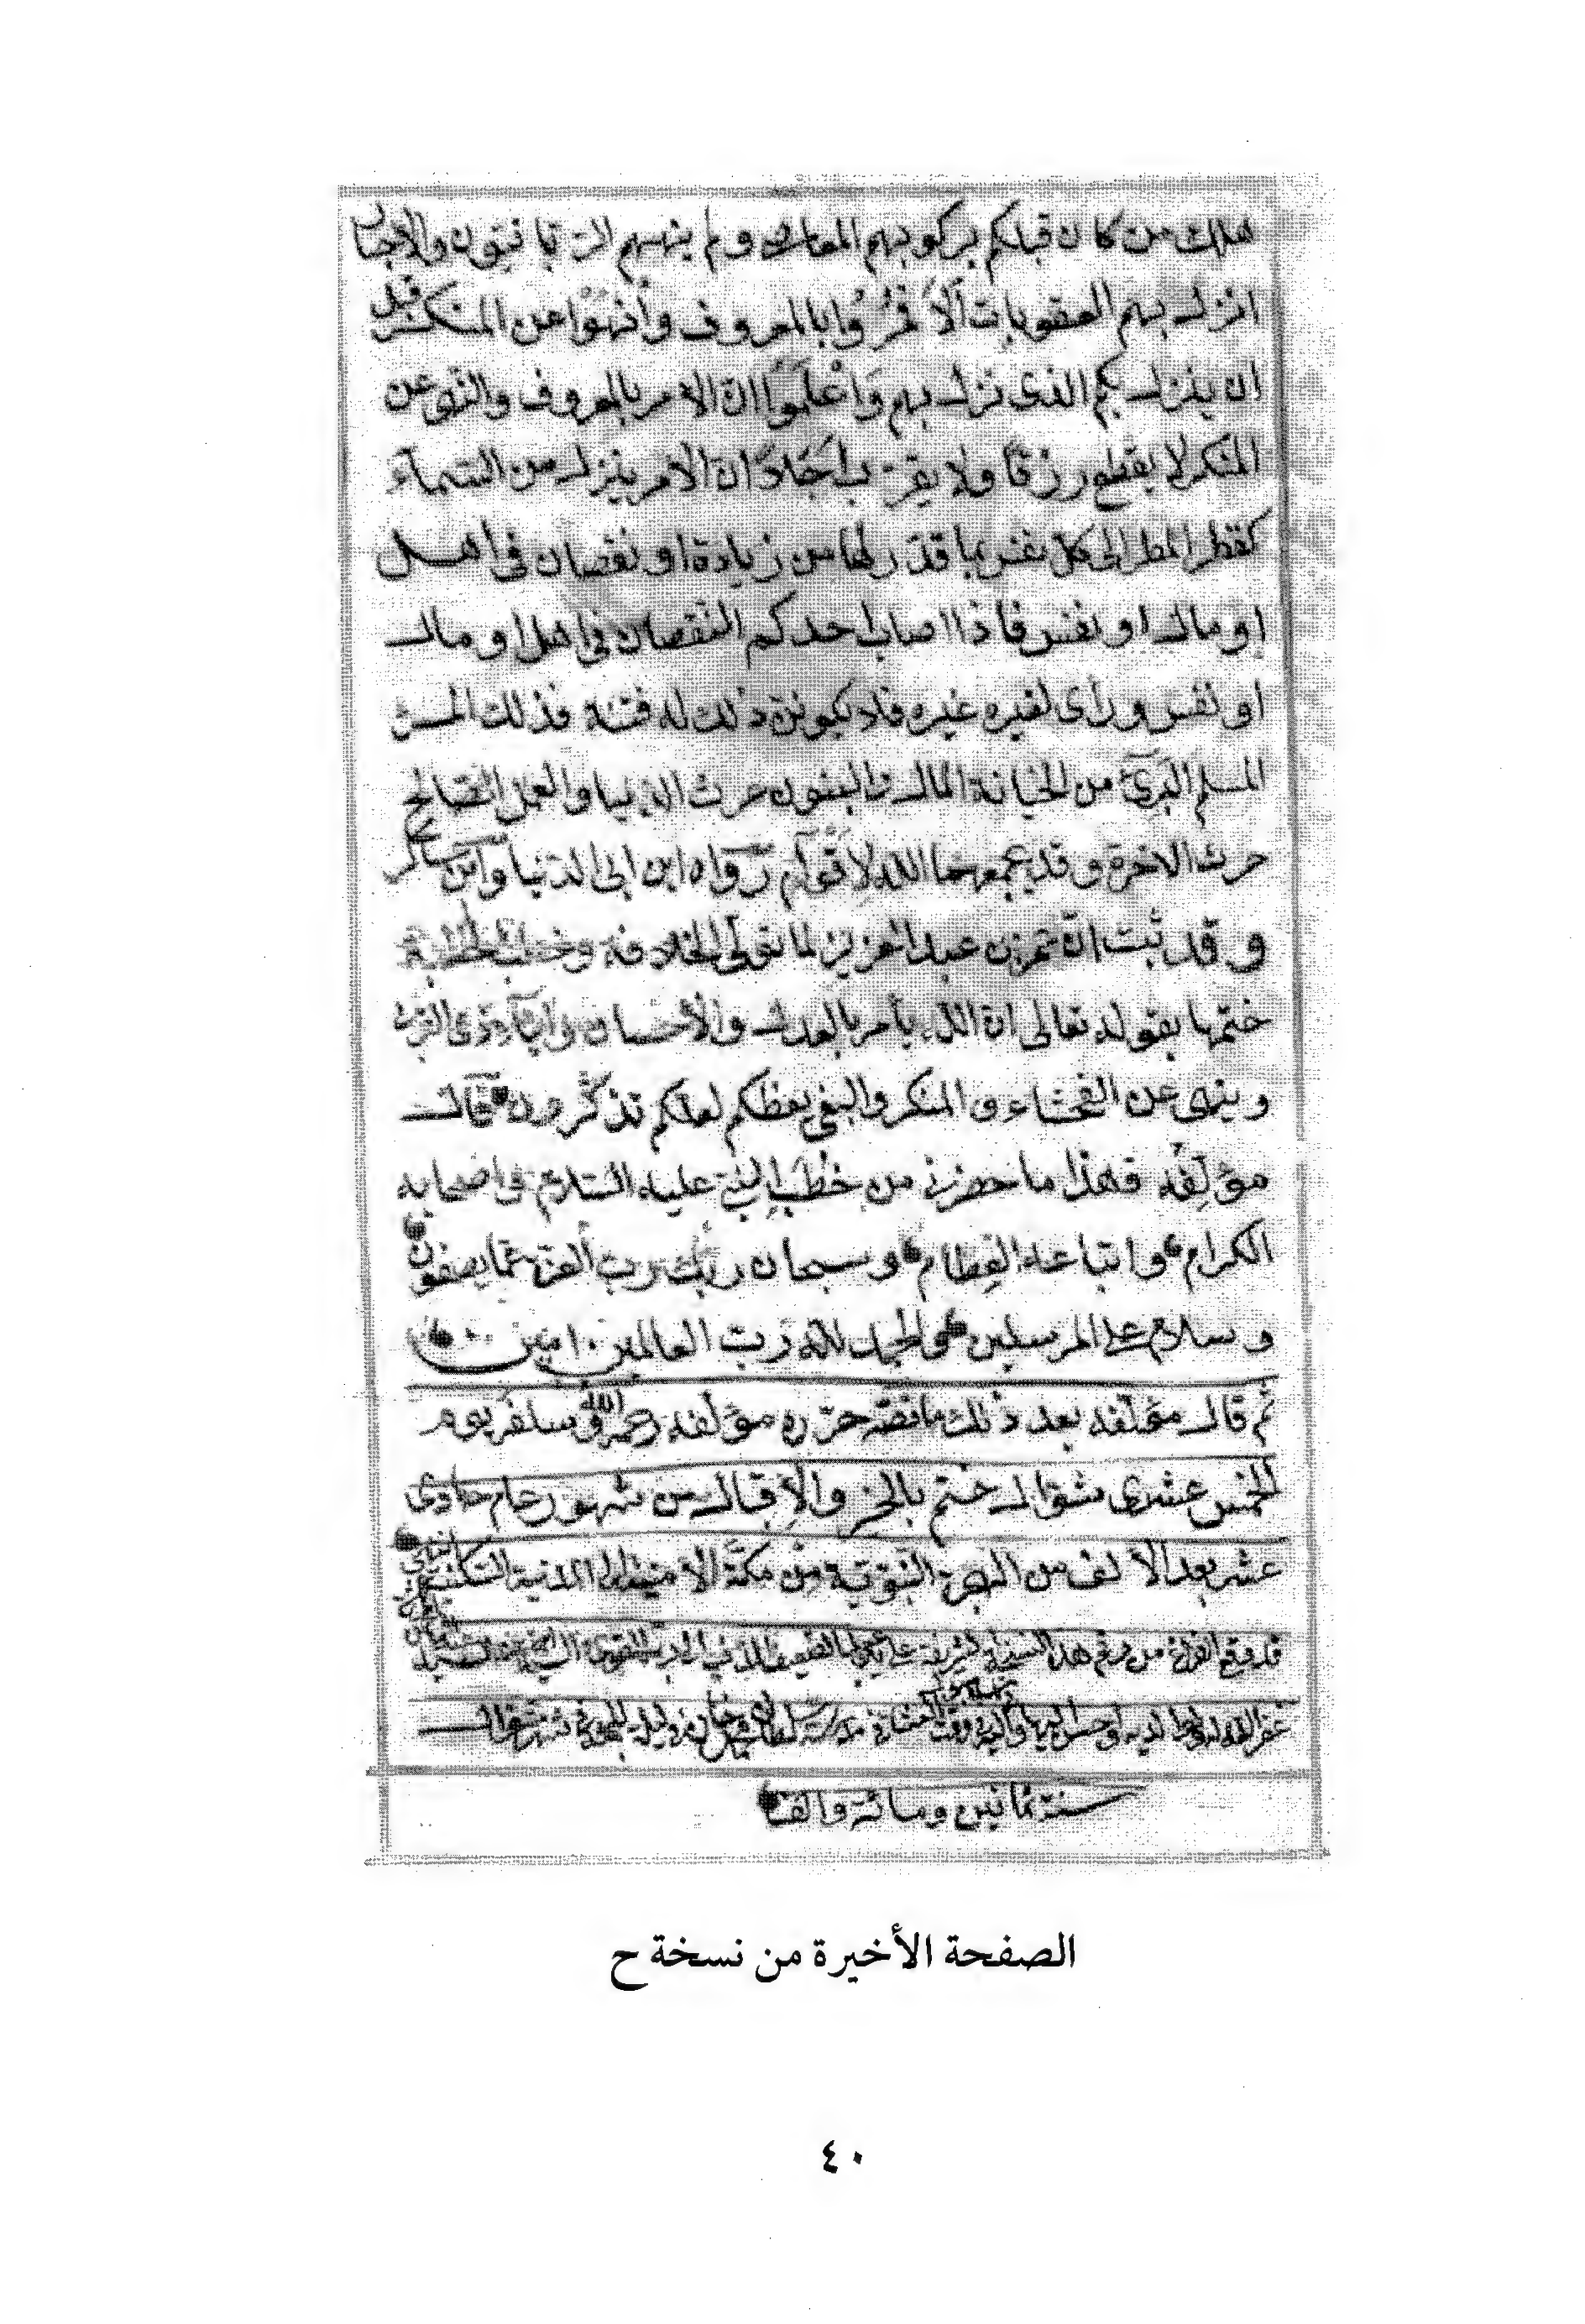 هلك من كان قبلكم بركوبهم المعاصى ولم ينههم الربانيون والاحبار
انزل بهم العقوبات ألا فمروا بالمعروف وأنهوا عن المنكر قبل
ان ينزل بكم الذى نزل بهم وأعلموا ان الامر بالمعروف والنهى عن
المنكر لا يقطع رزقا ولا يقرب اجلا ان الامر ينزل من السماء
كقطر المطر الى كل نفس بما قدر لها من زيادة او نقصان فى اهل
او مال او نفس فاذا اصاب احدكم النقصان فى اهل او مال
او نفس ورأى لغيره غيره فلا يكونن ذلك له فتنة فذلك المرء
المسلم البرئ من الخيانة المال والبنون حرث الدنيا والعمل الصالح
حرث الاخرة وقد يجمعهما الله لأقوام رواه ابن ابى الدنيا وابن عساكر
وقد ثبت ان عمر بن عبد العزيز لما تولى الخلافة وخطب الخطبة
ختمها بقوله تعالى ان الله يأمر بالعدل والأحسان وايتاء ذى القربى
وينهى عن الفحشاء والمنكر والبغى يعظكم لعلكم تذكرون قال
مؤلفه فهذا ما حضرنى من خطب النبى عليه السلام فى اصحابه
الكرام واتباعه الفظام وسبحان ربك رب العزة عما يصفون
وسلام على المرسلين والحمد لله رب العالمين امين
ثم قال مؤلفه بعد ذلك ما نصه حرره مؤلفه رحمه الله وسلفه يوم
الخمس عشرى شوال ختم بالخير والإقبال من شهور عام حادى
عشر بعد الألف من الهجرة النبوية من مكة الامينة الى المدينة السكينة
قد وقع الفراغ من رقم هذه النسخة الشريفة على يد
غفر الله له ولوالديه واحسن اليهما واليه وقت العشاء ليلة الجمعة شوال
سنة ثمانين ومائة والف
الصفحة الأخيرة من نسخة ح
٤٠